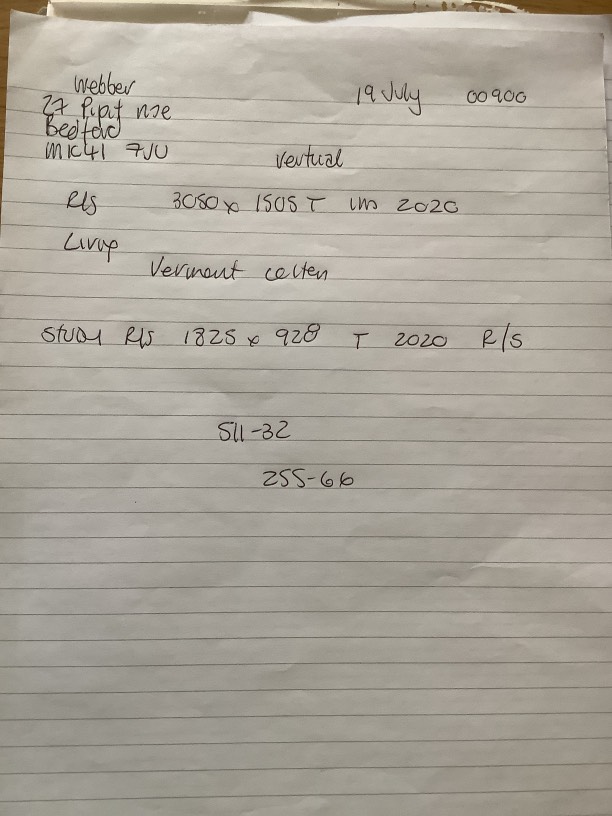 Webber
19 July 00900
27 Pipit rise
Bedford
MK41 7JU
Vertical
R/s 3050 x 1505 T um 2020
Living
Vermont
Study R/s 1825 x 928 T 2020 R/S
511-32
255-66